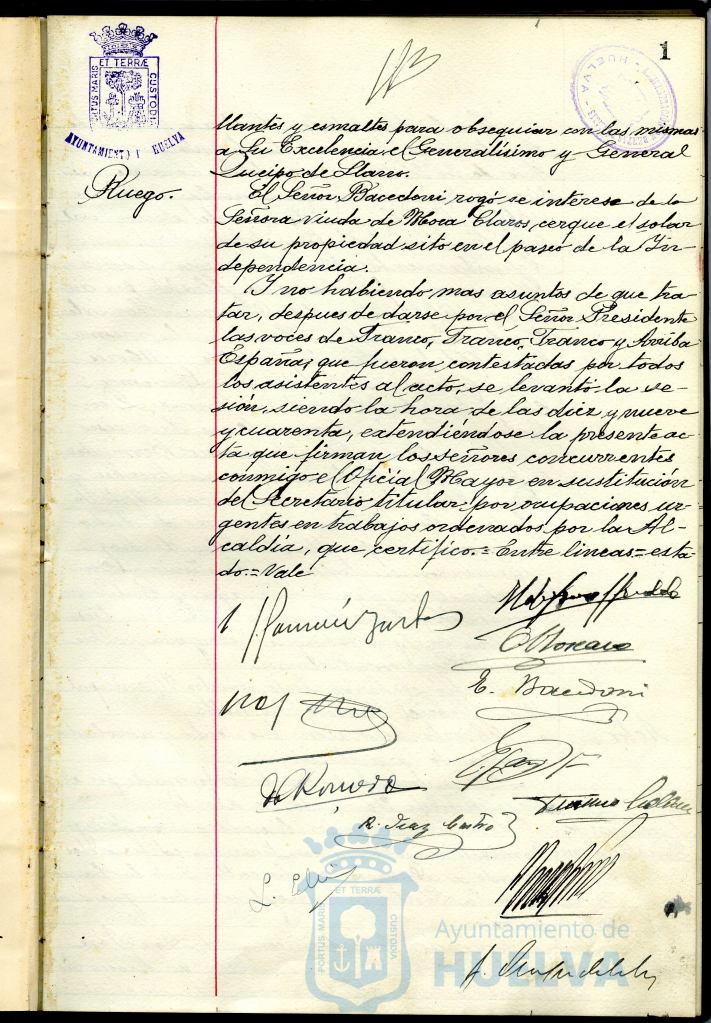 1
PORTUS MARIS ET TERRÆ CUSTODIA
AYUNTAMIENTO DE HUELVA
HUELVA
Ruego.
llantes y esmaltes para obsequiar con las mismas
a Su Excelencia el Generalísimo y General
Queipo de Llano.
El Señor Bacedoni, rogó se interese de la
Señora viuda de Mora Claros, cerque el solar
de su propiedad sito en el paseo de la In-
dependencia.
Y no habiendo mas asuntos de que tra-
tar, despues de darse por el Señor Presidente
las voces de Franco, Franco, Franco y Arriba
España, que fueron contestadas por todos
los asistentes al acto, se levantó la se-
sión, siendo la hora de las diez y nueve
y cuarenta, extendiéndose la presente ac-
ta que firman los señores concurrentes
conmigo el Oficial Mayor en sustitución
del Secretario titular por ocupaciones ur-
gentes en trabajos ordenados por la Al-
caldía, que certifico.=Entre lineas=esta-
do.=Vale
E. Bacedoni
R. Diaz Castro
PORTUS MARIS ET TERRÆ CUSTODIA
Ayuntamiento de
HUELVA